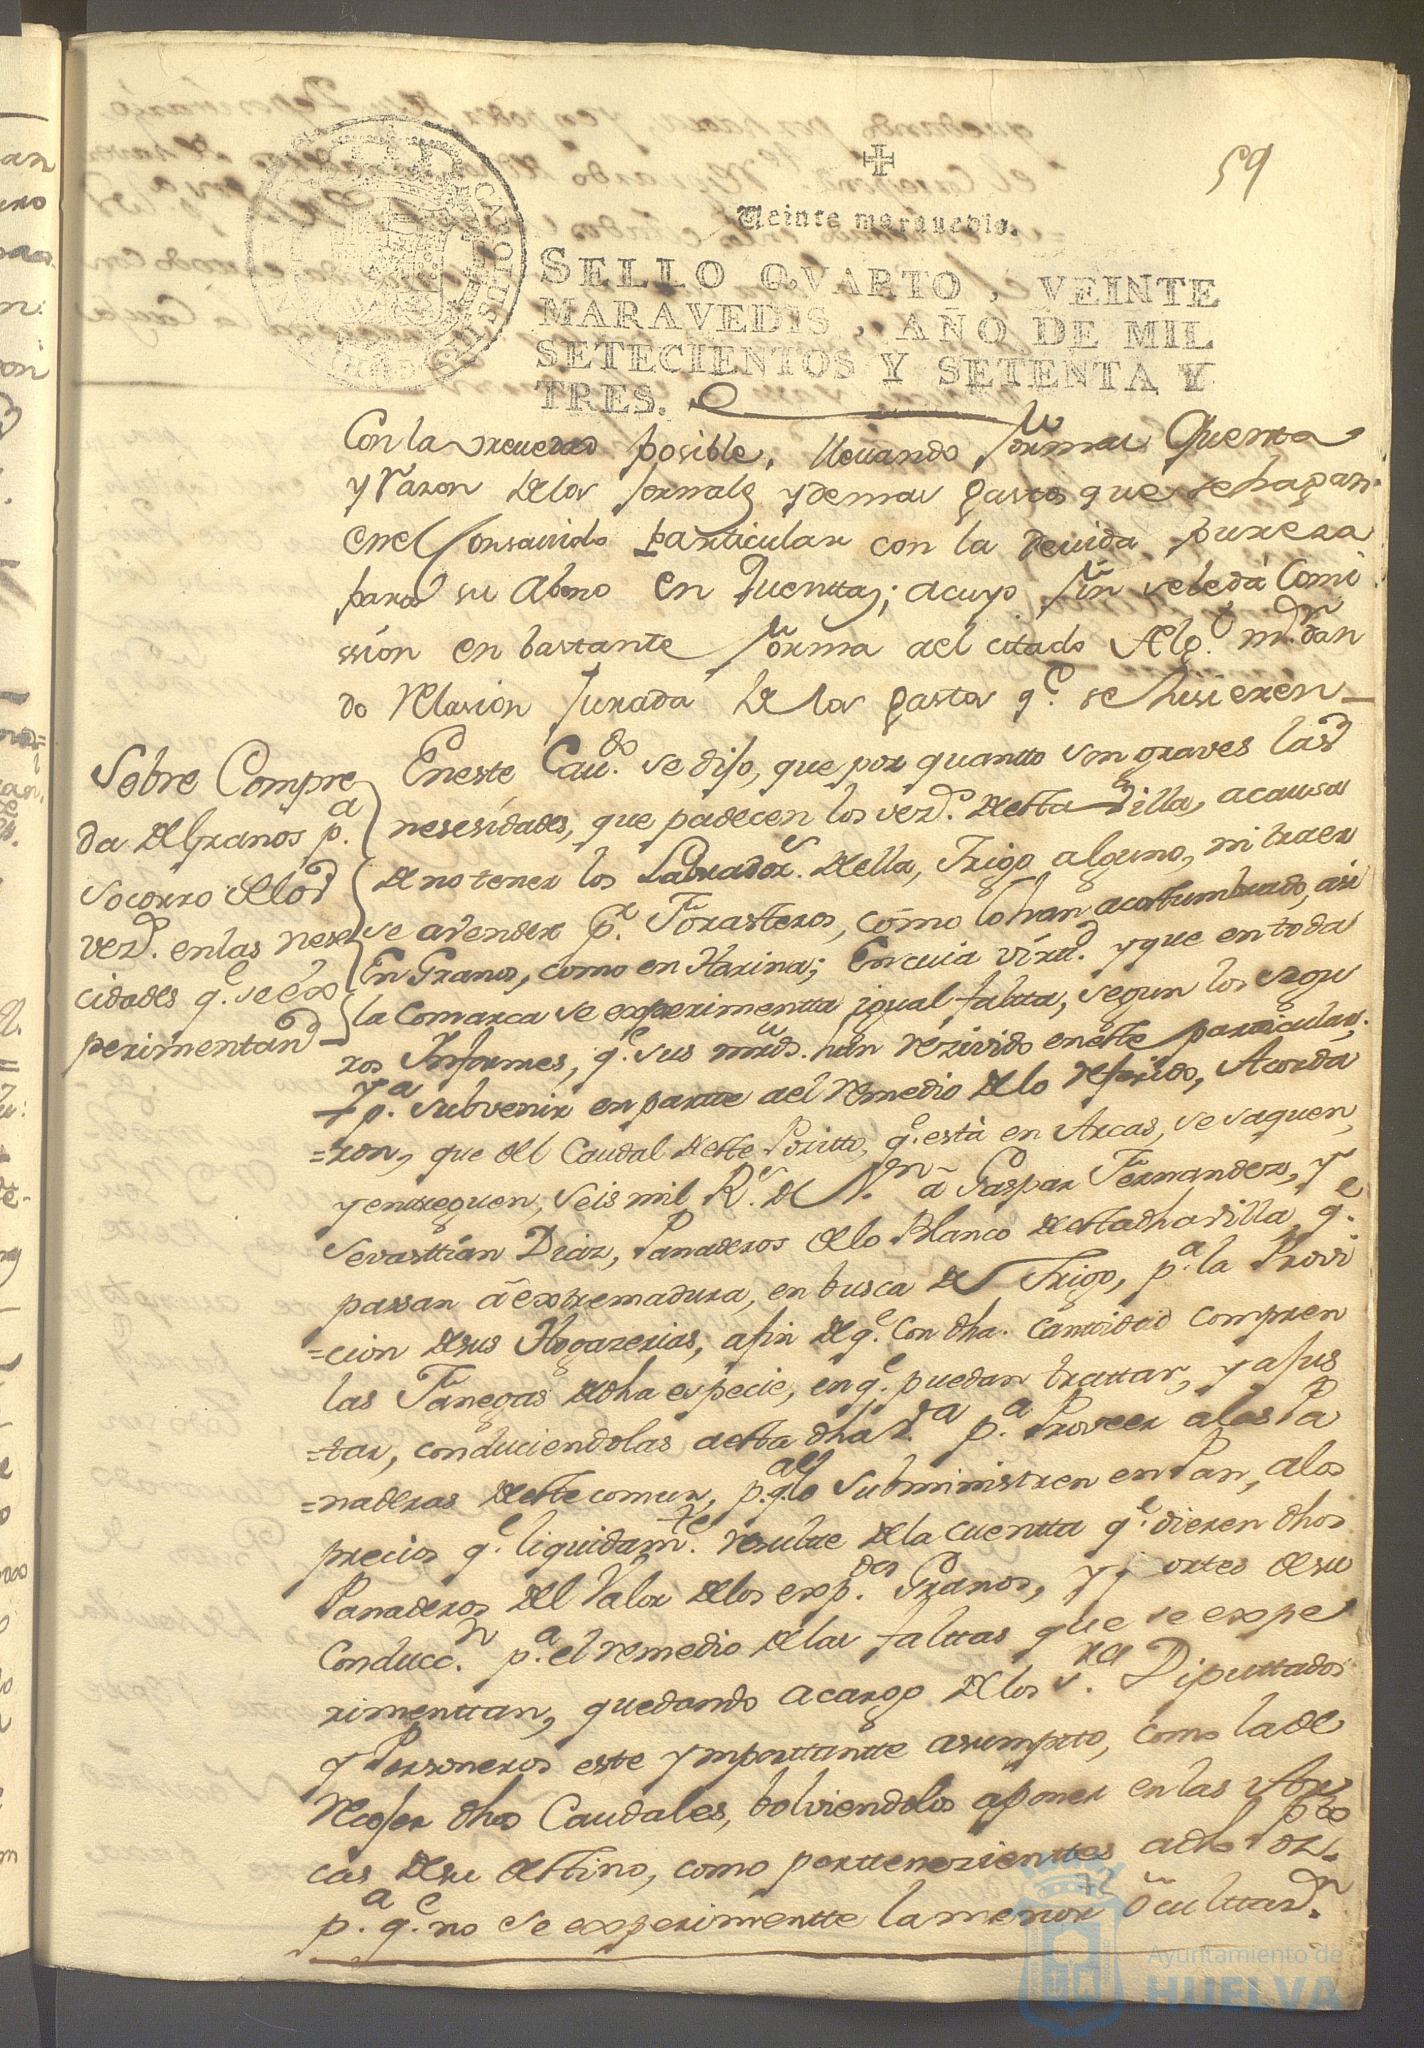 59
Veinte maravedis.
SELLO QVARTO, VEINTE
MARAVEDIS, AÑO DE MIL
SETECIENTOS Y SETENTA Y
TRES.
Con la brevedad posible, llevando formal Quenta
y razon de los Jornales y demas gastos que se hagan
en el consavido particular con la devida pureza
para su abono en Quentta; a cuyo fin se le dá Comi
ssion en bastante forma a el citado Alg.l m.r dan
do relasion Jurada de los gastos q.e se hisieren
Sobre Compre
da de Granos p.a
socorro de los
vez.s en las nese
cidades q.e se ex
perimentan
En este Cav.do se dijo, que por quantto son graves las
nesesidades, que padecen los vez.s de esta Villa, a causa
de no tener los Labrador.s de ella, Trigo alguno, ni traer
se a vender p.r Forasteros, cómo lo han acostumbrado, asi
En Grano, como en Harina; En cuia virtd. y que en toda
la Comarca se experimentta igual faltta, segun los segu
ros Informes, q.e sus mrds. han rezivido en este particular,
Y p.a subvenir en partte a el remedio de lo referido, Acorda
=ron, que del Caudal de este Pósitto, q.e está en Arcas, se saquen,
y entreguen, seis mil R.s de V.n á Gaspar Fernandez, y
Sevasttian Diaz, Panaderos de lo Blanco de esta dha villa, q.e
passan á extremadura, en busca de Trigo, p.a la Provi
=cion de sus Hogazerias, a fin de q.e con dha. cantidad compren
las Fanegas de dha especie, en q.e puedan trattar, y ajus
=tar, conduciendolas a esta dha V.a p.a Proveer a las Pa
=naderas de este comun, p.a q.e lo subministren en Pan, a los
precios q.e liquidam.te resulte de la cuentta q.e dieren dhos
Panaderos del Valor de los exp.dos Granos, y portes de su
Conducc.n p.a el remedio de las falttas que se expe
rimenttan, quedando a cargo de los s.res Diputtados
y Personeros este ymporttantte asumpto, como la de
recojer dhos Caudales, bolviendolos a poner en las Ar
cas de su desttino, como perttenezienttes a dho Pto
p.a q.e no se experimentte la menor
Ayuntamiento de
HUELVA